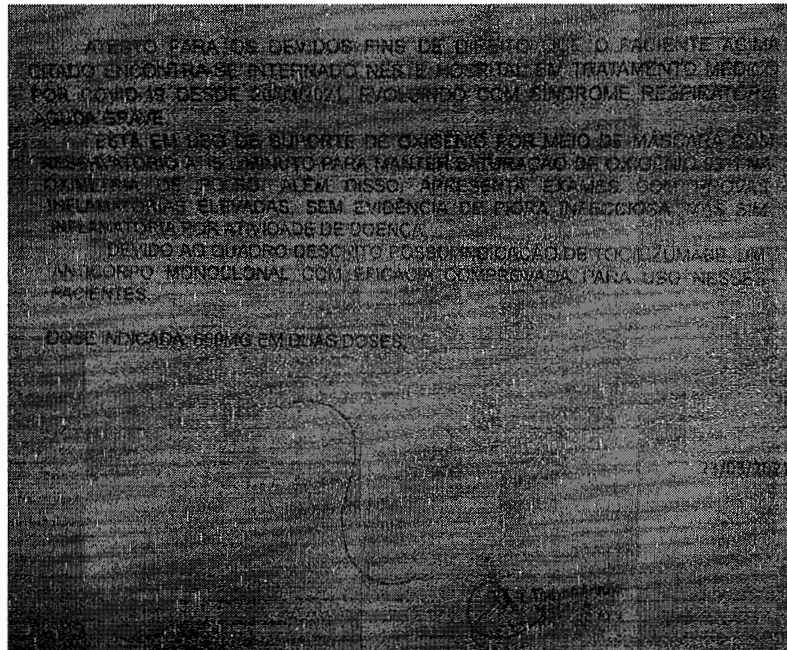 ATESTO PARA OS DEVIDOS FINS DE DIREITO QUE O PACIENTE ACIMA
CITADO ENCONTRA-SE INTERNADO NESTE HOSPITAL EM TRATAMENTO MÉDICO
POR COVID-19 DESDE EVOLUINDO COM SÍNDROME RESPIRATÓRIA
AGUDA GRAVE.
ESTÁ EM USO DE SUPORTE DE OXIGÊNIO POR MEIO DE MÁSCARA COM
RESERVATÓRIO A MINUTO PARA MANTER SATURAÇÃO DE OXIGÊNIO NA
OXIMETRIA DE PULSO. ALÉM DISSO, APRESENTA EXAMES COM PROVAS
INFLAMATÓRIAS ELEVADAS, SEM EVIDÊNCIA DE PIORA INFECCIOSA, MAS SIM
INFLAMATÓRIA POR ATIVIDADE DE DOENÇA.
DEVIDO AO QUADRO DESCRITO POSSUI INDICAÇÃO DE TOCILIZUMABE, UM
ANTICORPO MONOCLONAL COM EFICÁCIA COMPROVADA PARA USO NESSES
PACIENTES.
DOSE INDICADA: EM DUAS DOSES.